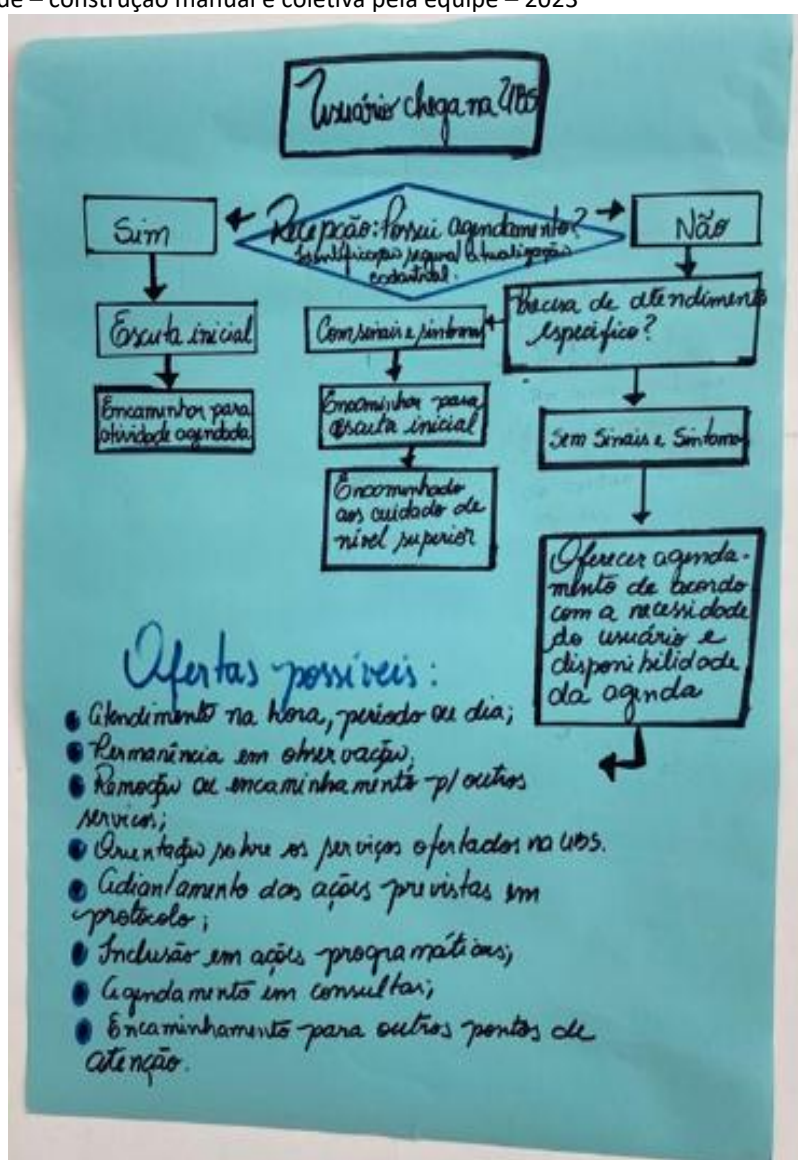 de – construção manual e coletiva pela equipe – 2023
Usuário chega na UBS
Sim
Recepção: Possui agendamento?
Identificação segura/atualização
cadastral.
Não
Escuta inicial
Encaminhar para
atividade agendada
Com sinais e sintoma
Encaminhar para
escuta inicial
Encominhado
aos cuidado de
nível superior
Precisa de atendimento
específico?
Sem Sinais e Sintoma
Oferecer agenda-
mento de acordo
com a necessidade
do usuário e
disponibilidade
da agenda
Ofertas possíveis:
Atendimento na hora, período ou dia;
Permanência em observação;
Remoção ou encaminhamento p/ outros
serviços;
Orientação sobre os serviços ofertados na UBS.
Adiantamento das ações previstas em
protocolo;
Inclusão em ações programáticas;
Agendamento em consultas;
Encaminhamento para outros pontos de
atenção.